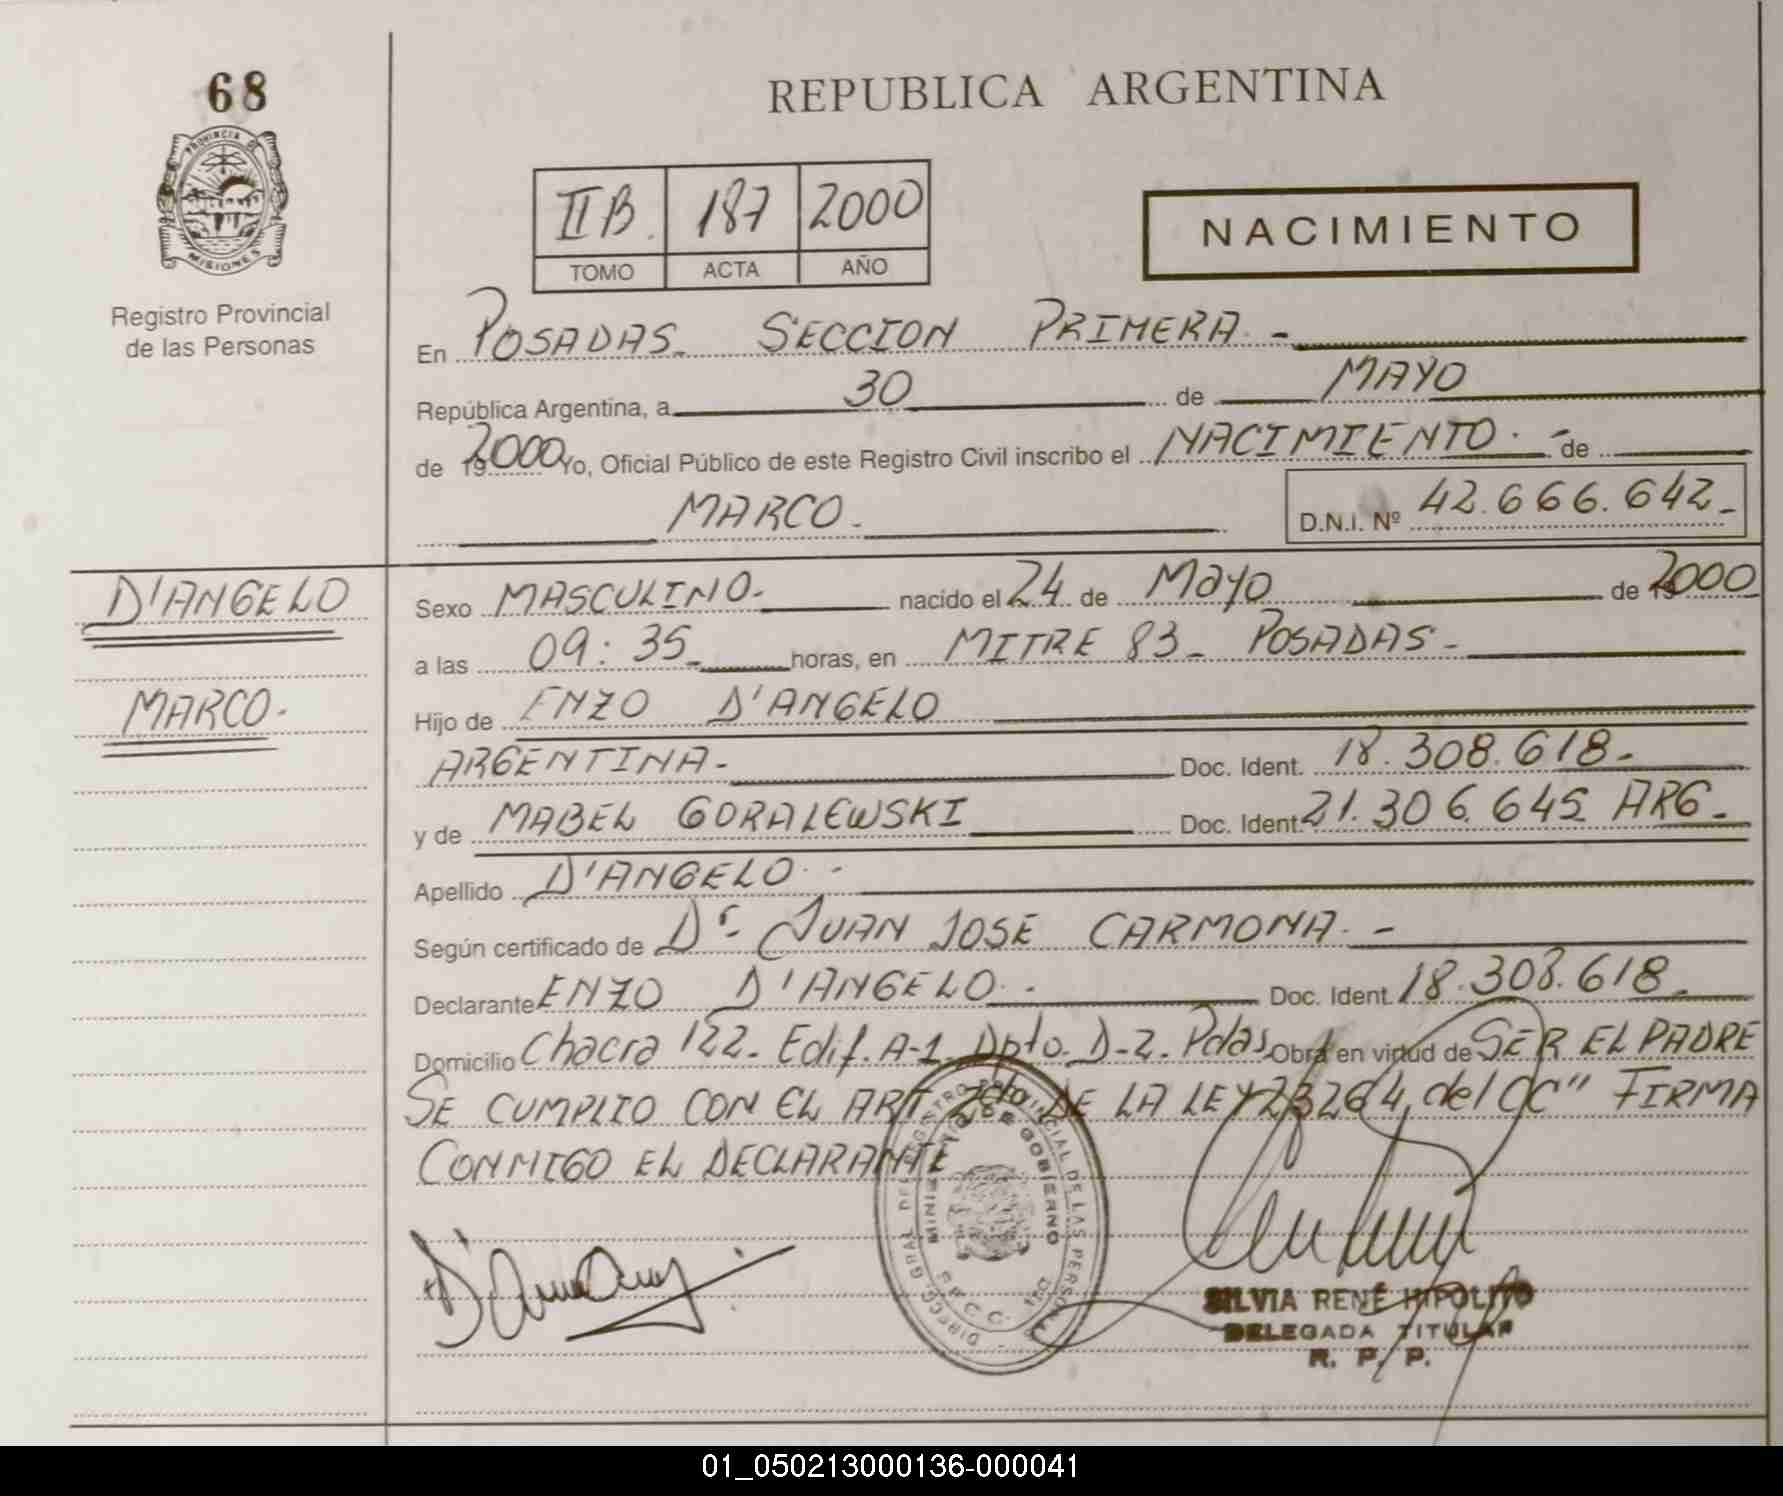 68
PROVINCIA DE
MISIONES
Registro Provincial
de las Personas
REPUBLICA ARGENTINA
IIB. 187 2000
TOMO ACTA AÑO
NACIMIENTO
En POSADAS. SECCION PRIMERA. -
República Argentina, a 30 de MAYO
de 2000 Yo, Oficial Público de este Registro Civil inscribo el NACIMIENTO. - de
MARCO. D.N.I. Nº 42.666.642.-
D'ANGELO
MARCO.-
Sexo MASCULINO.- nacido el 24 de MAYO de 2000
a las 09:35 horas, en MITRE 83 - POSADAS -
Hijo de ENZO D'ANGELO
ARGENTINA.- Doc. Ident. 18.308.618.-
y de MABEL GORALEWSKI Doc. Ident. 21.306.645 ARG.-
Apellido D'ANGELO. -
Según certificado de Dr. JUAN JOSE CARMONA. -
Declarante ENZO D'ANGELO. - Doc. Ident. 18.308.618.-
Domicilio Chacra 122- Edif. A-1. Dpto. D-2. Pdas. Obra en virtud de SER EL PADRE
SE CUMPLIO CON EL ART DE LA LEY 23264, del CC" FIRMA
CONMIGO EL DECLARANTE
MINISTERIO DE GOBIERNO
SILVIA RENÉ HIPOLITO
DELEGADA TITULAR
R. P. P.
01_050213000136-000041